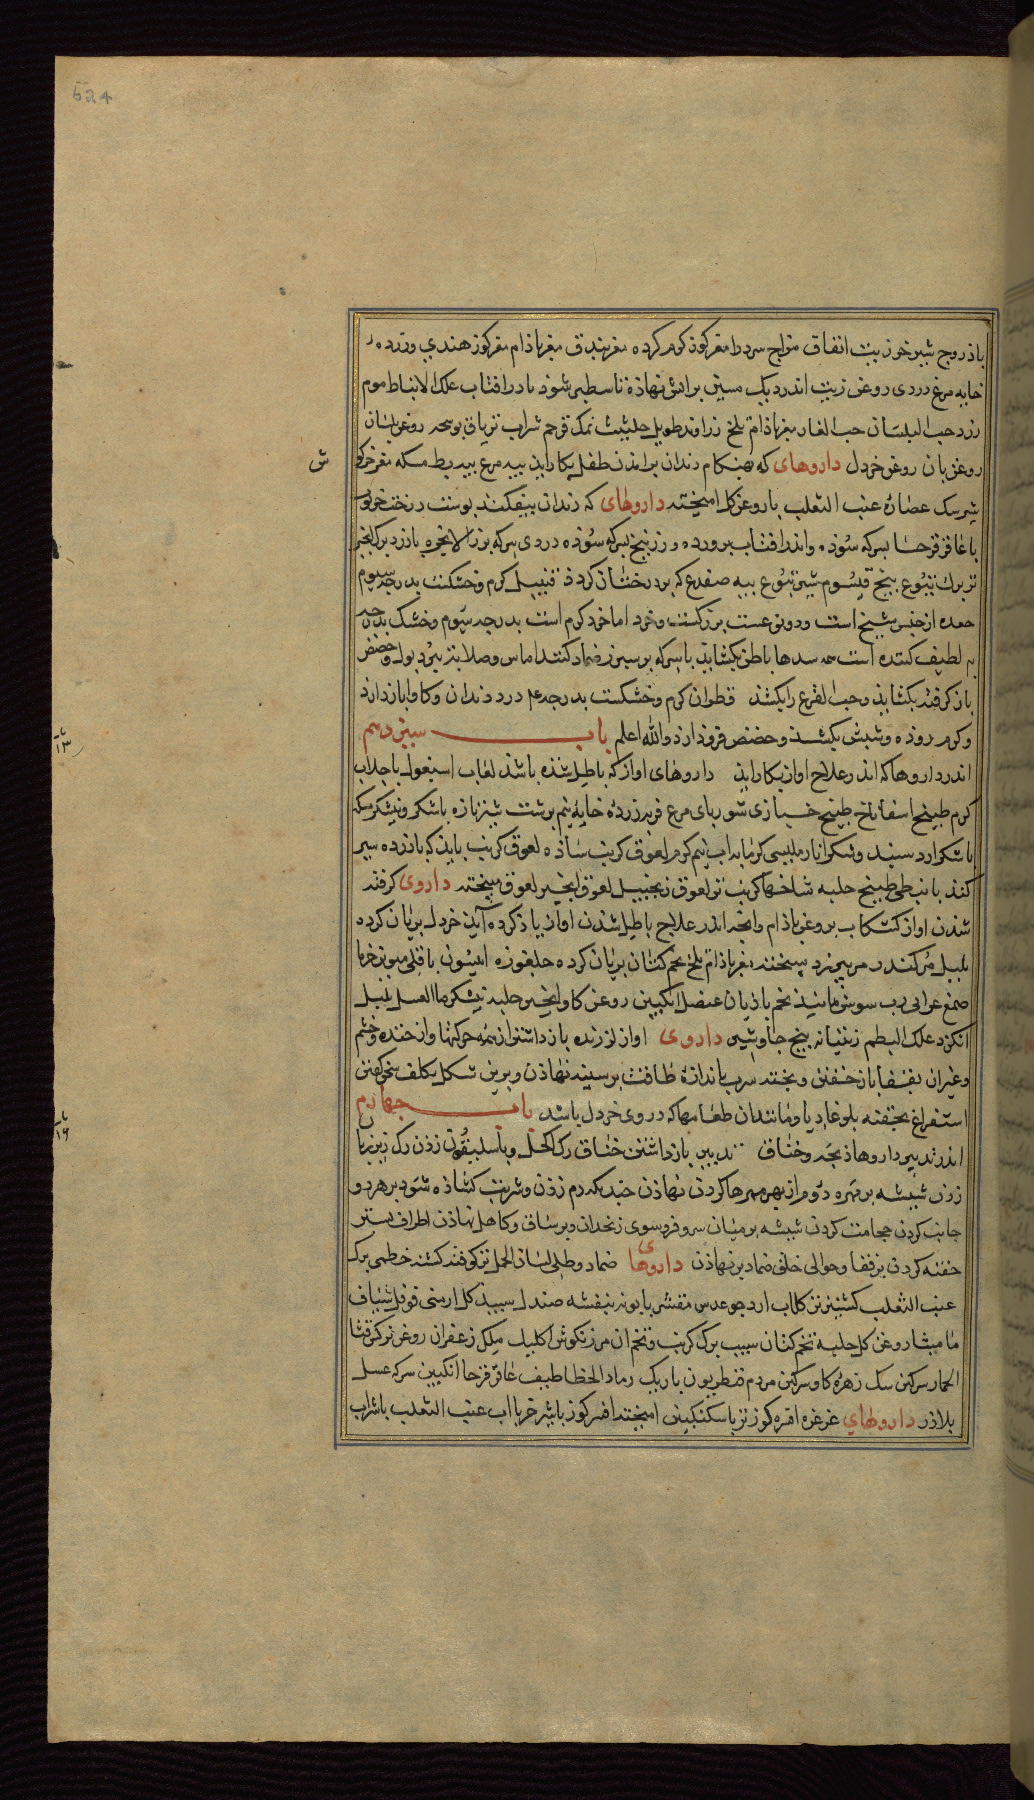 624
باذروج شیر خر زیت انفاق مزاج سرد را مغز کوز کرم کرده مغز بندق مغز باذام مغز کوز هندی و زرده
خایه مرغ دردی روغن زیت اندر دیک مسین بر اتش نهاذه تا سطبر شوذ یا در افتاب علک الانباط موم
زرد حب البلسان حب الغار مغز باذام تلخ زراوند طویل حلتیت نمک شراب تریاق روغن بلسان
روغن بان روغن خردل داروهای که بهنکام دندان برامدن طفل بکار ایذ پیه مرغ پیه بط مسکه مغز خرکوش
شیر سک عصاره عنب الثعلب با روغن کل امیخته داروهای که دندان بیفکند پوست درخت توت
با عاقرقرحا بسرکه سوده و اندر افتاب پرورده و زرنیخ بسرکه سوذه دردی سرکه بزر الانجره بارزد
برک یتوع بیخ قیسوم شیر یتوع پیه ضفدع که بر درختان کردذ قنبیل کرم و خشکست بدرجه سیوم
جعده از جنس شیح است و دو نوعست بزرکست و خرد اما خرد کرم است بدرجه سیوم و خشک بدرجه
لطیف کننده است همه سدها باطن بکشایذ با سرکه بر سپرز ضماد کنند اماس و صلابت ببرد بول و حیض
باز کرفته بکشایذ و حب القرع را بکشذ قطران کرم و خشکست بدرجه درد دندان و کاو ابازدارذ
و کرم روذه و شپش بکشذ و حیض فروذ ارذ والله اعلم باب سیزدهم
اندر داروها که اندر علاج اواز بکار ایذ داروهای اواز که باطل شذه باشذ لعاب اسبغول با جلاب
کرم طبیخ اسفاناخ طبیخ خبازی شوربای مرغ فربه زرده خایه نیم برشت شیر تازه با شکر و نیشکر مسکه
با شکر ارد سپید و شکر انار ملیسی کرمابه اب نیم کرم لعوق کرنب ساذه لعوق کرنب بایذ که با زرده سیر
کنذ یا نبطی طبیخ حلبه شاخها کرنب تر لعوق زنجبیل لعوق انجیر لعوق میبخته داروی کرفته
شذن اواز کشکاب بروغن باذام و انچه اندر علاج باطل شذن اواز یاذ کرده آیذ خردل بریان کرده
پلپل مر کندر میبخته مغز باذام تلخ تخم کتان بریان کرده حلغوزه انیسون باقلی مویز خرما
صمغ عربی رب سوس تخم باذیان عنصل انکبین روغن کاو انجیر حلبه نیشکر ماالعسل پلپل
انکزد علک البطم بیخ جاوشیر داروی اواز لرزنده باز داشتن از همه حرکتها و از خنده و خشم
و غیر ان بقفا باز خفتن و تخته سرب باندازه طاقت بر سینه نهاذن و برین شکل بکلف سخن کفتن
استفراغ بحقنه بلوغاذیا و مانند ان طعامها که در وی خردل باشد باب چهاردهم
اندر تدبیر داروها ذبحه و خناق تدبیر باز داشتن خناق رک اکحل و باسلیق زذن رک زیر زبان
زذن شیشه بر مهره دوم از بهر مهرها کردن نهاذن چند بکه دم زذن و شربت کشاذه شود بر هر دو
جانب کردن حجامت کردن شیشه بر میان سر و فروسوی زنخدان و بر ساق و کاهل نهاذن اطراف بستن
حقنه کردن بر قفا و حوالی حلق ضماد برنهاذن داروهای ضماد و طلی لسان الحمل تر کوفته کشنه خطمی برک
عنب الثعلب کشنیز تر کلاب ارد جو عدس مقشر بابونه بنفشه صندل سپید کل ارمنی فوفل شیاف
مامیثا روغن کل حلبه تخم کتان سیب برک کرنب و تخم ان مرزنکوش اکلیل ملک زعفران روغن نرکس قثا
الحمار سرکین سک زهره کاو سرکین مردم قنطریون باریک رماد الخطاطیف عاقرقرحا انکبین سرکه عسل
بلاذر داروهای غرغره افره کوز تر با سکنکبین امیخته افسره کوز با شیر خر با اب عنب الثعلب با شراب
باب ۱۳
باب ۱۴
ش